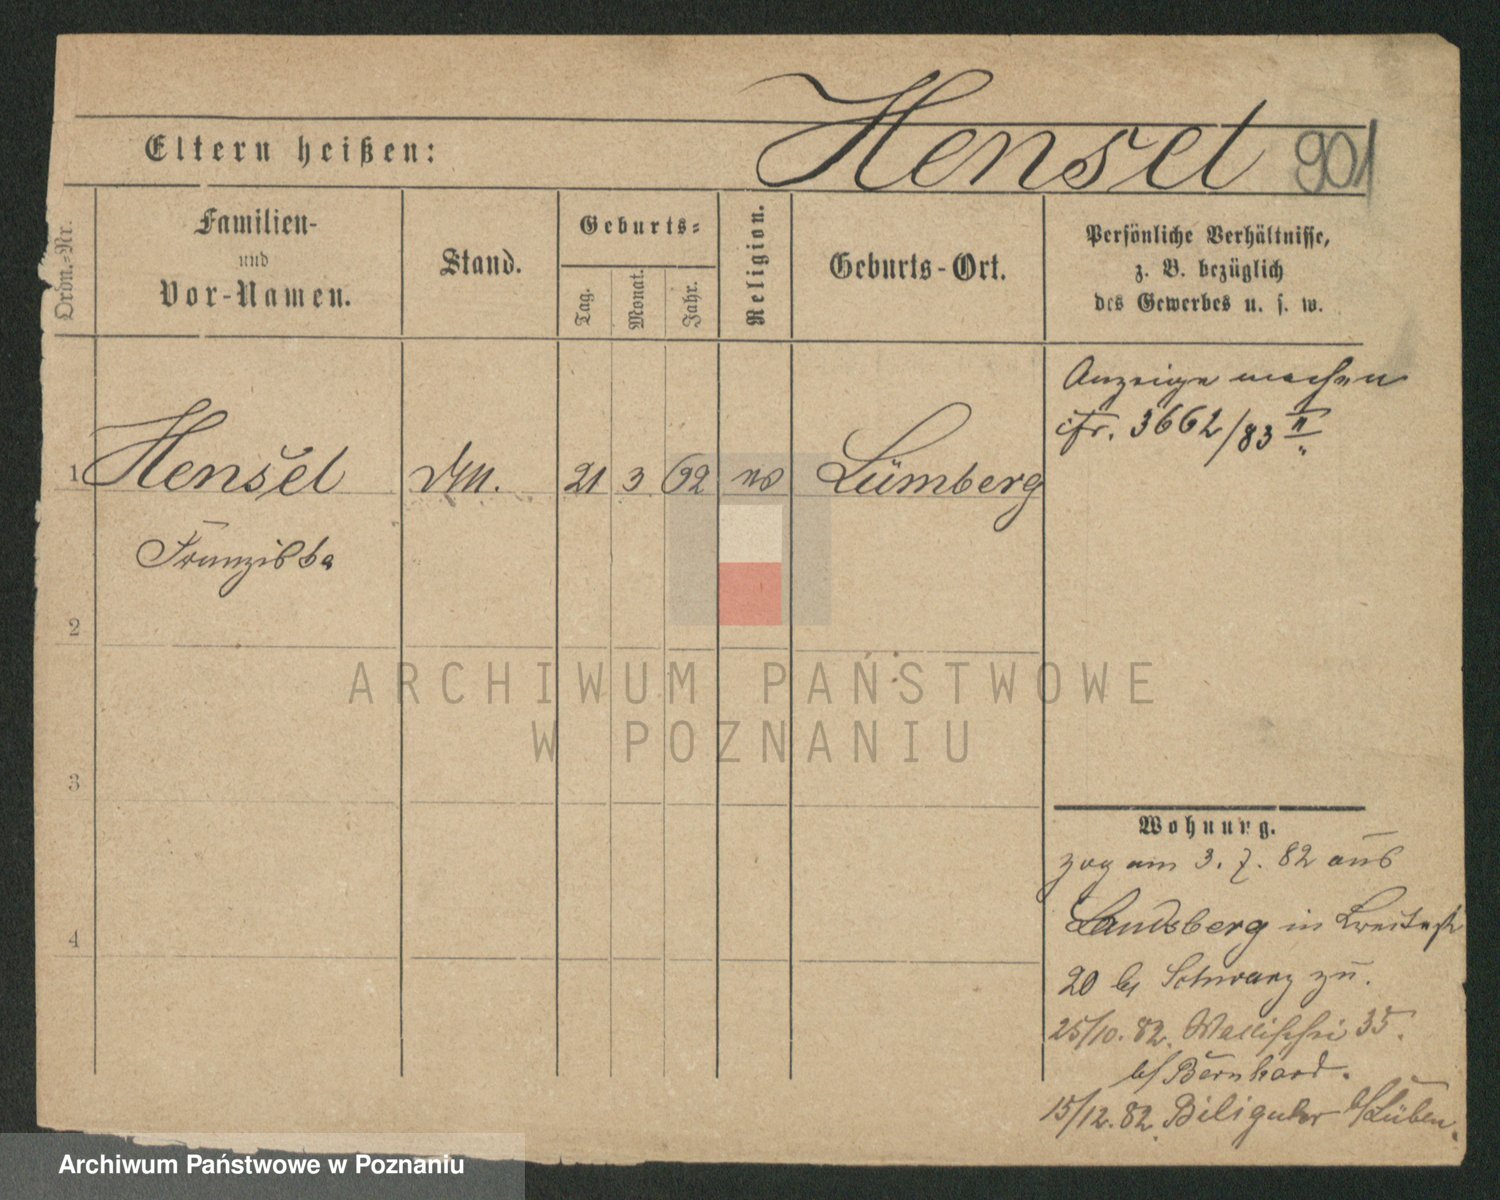 Hensel 901
Eltern heißen:
Ordn.-Nr.
Familien-
und
Vor-Namen.
Stand.
Geburts-
Tag.
Monat.
Jahr.
Religion.
Geburts-Ort.
Persönliche Verhältnisse,
z. B. bezüglich
des Gewerbes u. s. w.
Anzeige machen
3662/83 II
1 Hensel 21 3 Lümberg
Franziska
2
3
4
Wohnung.
zog am 3. 7. 82 aus
Landsberg in
20 b/ Schwarz zu.
25/10. 82. Wallischei 35.
b/ Bernhard.
15/12. 82. b/ Lüben.
ARCHIWUM PAŃSTWOWE
W POZNANIU
Archiwum Państwowe w Poznaniu